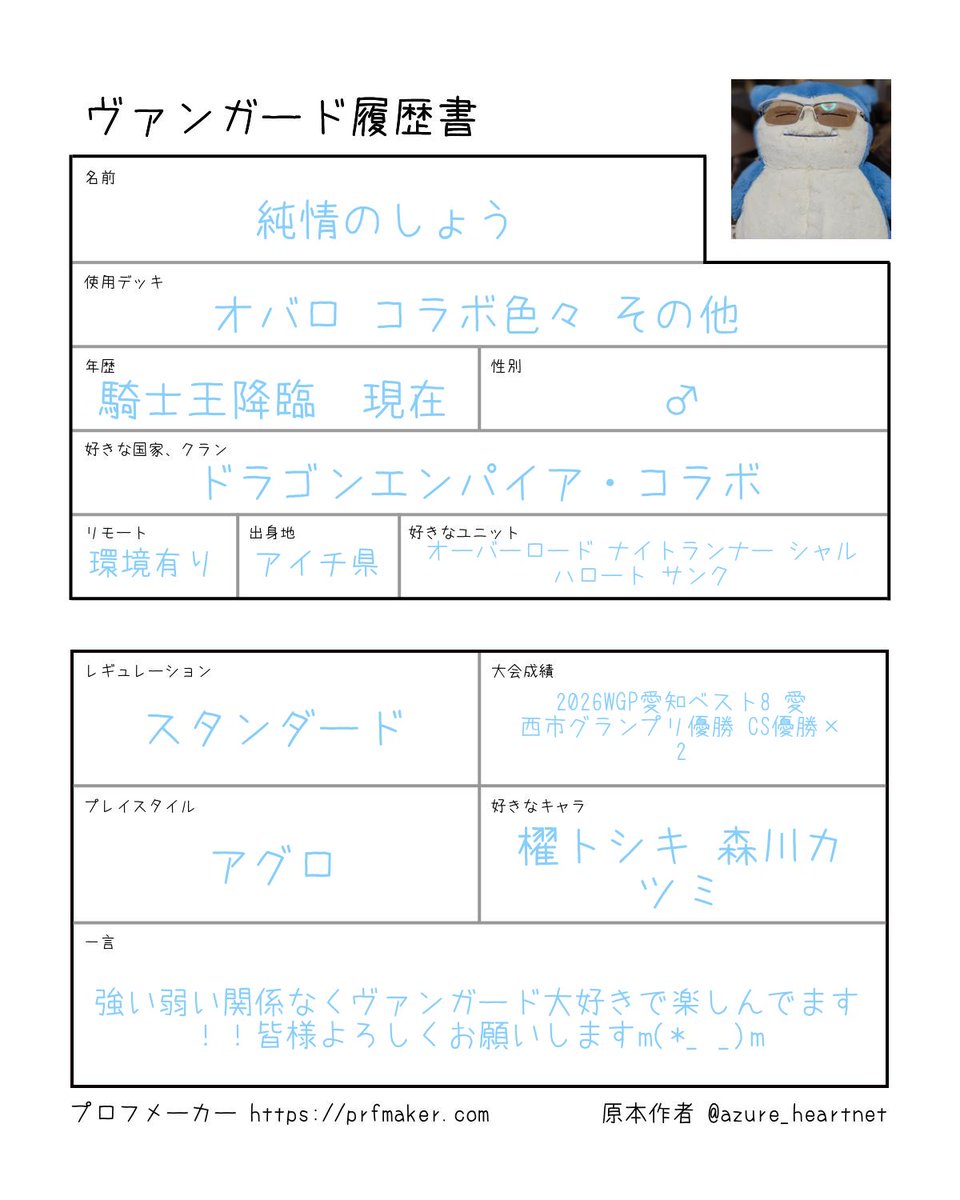 ヴァンガード履歴書
名前
純情のしょう
使用デッキ
オバロ コラボ色々 その他
年歴
騎士王降臨　現在
性別
♂
好きな国家、クラン
ドラゴンエンパイア・コラボ
リモート
環境有り
出身地
アイチ県
好きなユニット
オーバーロード ナイトランナー シャル
ハロート サンク
レギュレーション
スタンダード
大会成績
2026WGP愛知ベスト8 愛
西市グランプリ優勝 CS優勝×
2
プレイスタイル
アグロ
好きなキャラ
櫂トシキ 森川カ
ツミ
一言
強い弱い関係なくヴァンガード大好きで楽しんでます
！！皆様よろしくお願いしますm(*_ _)m
プロフメーカー https://prfmaker.com
原本作者 @azure_heartnet